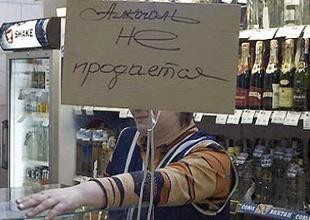 SHAKE
Алкоголь
не
продается